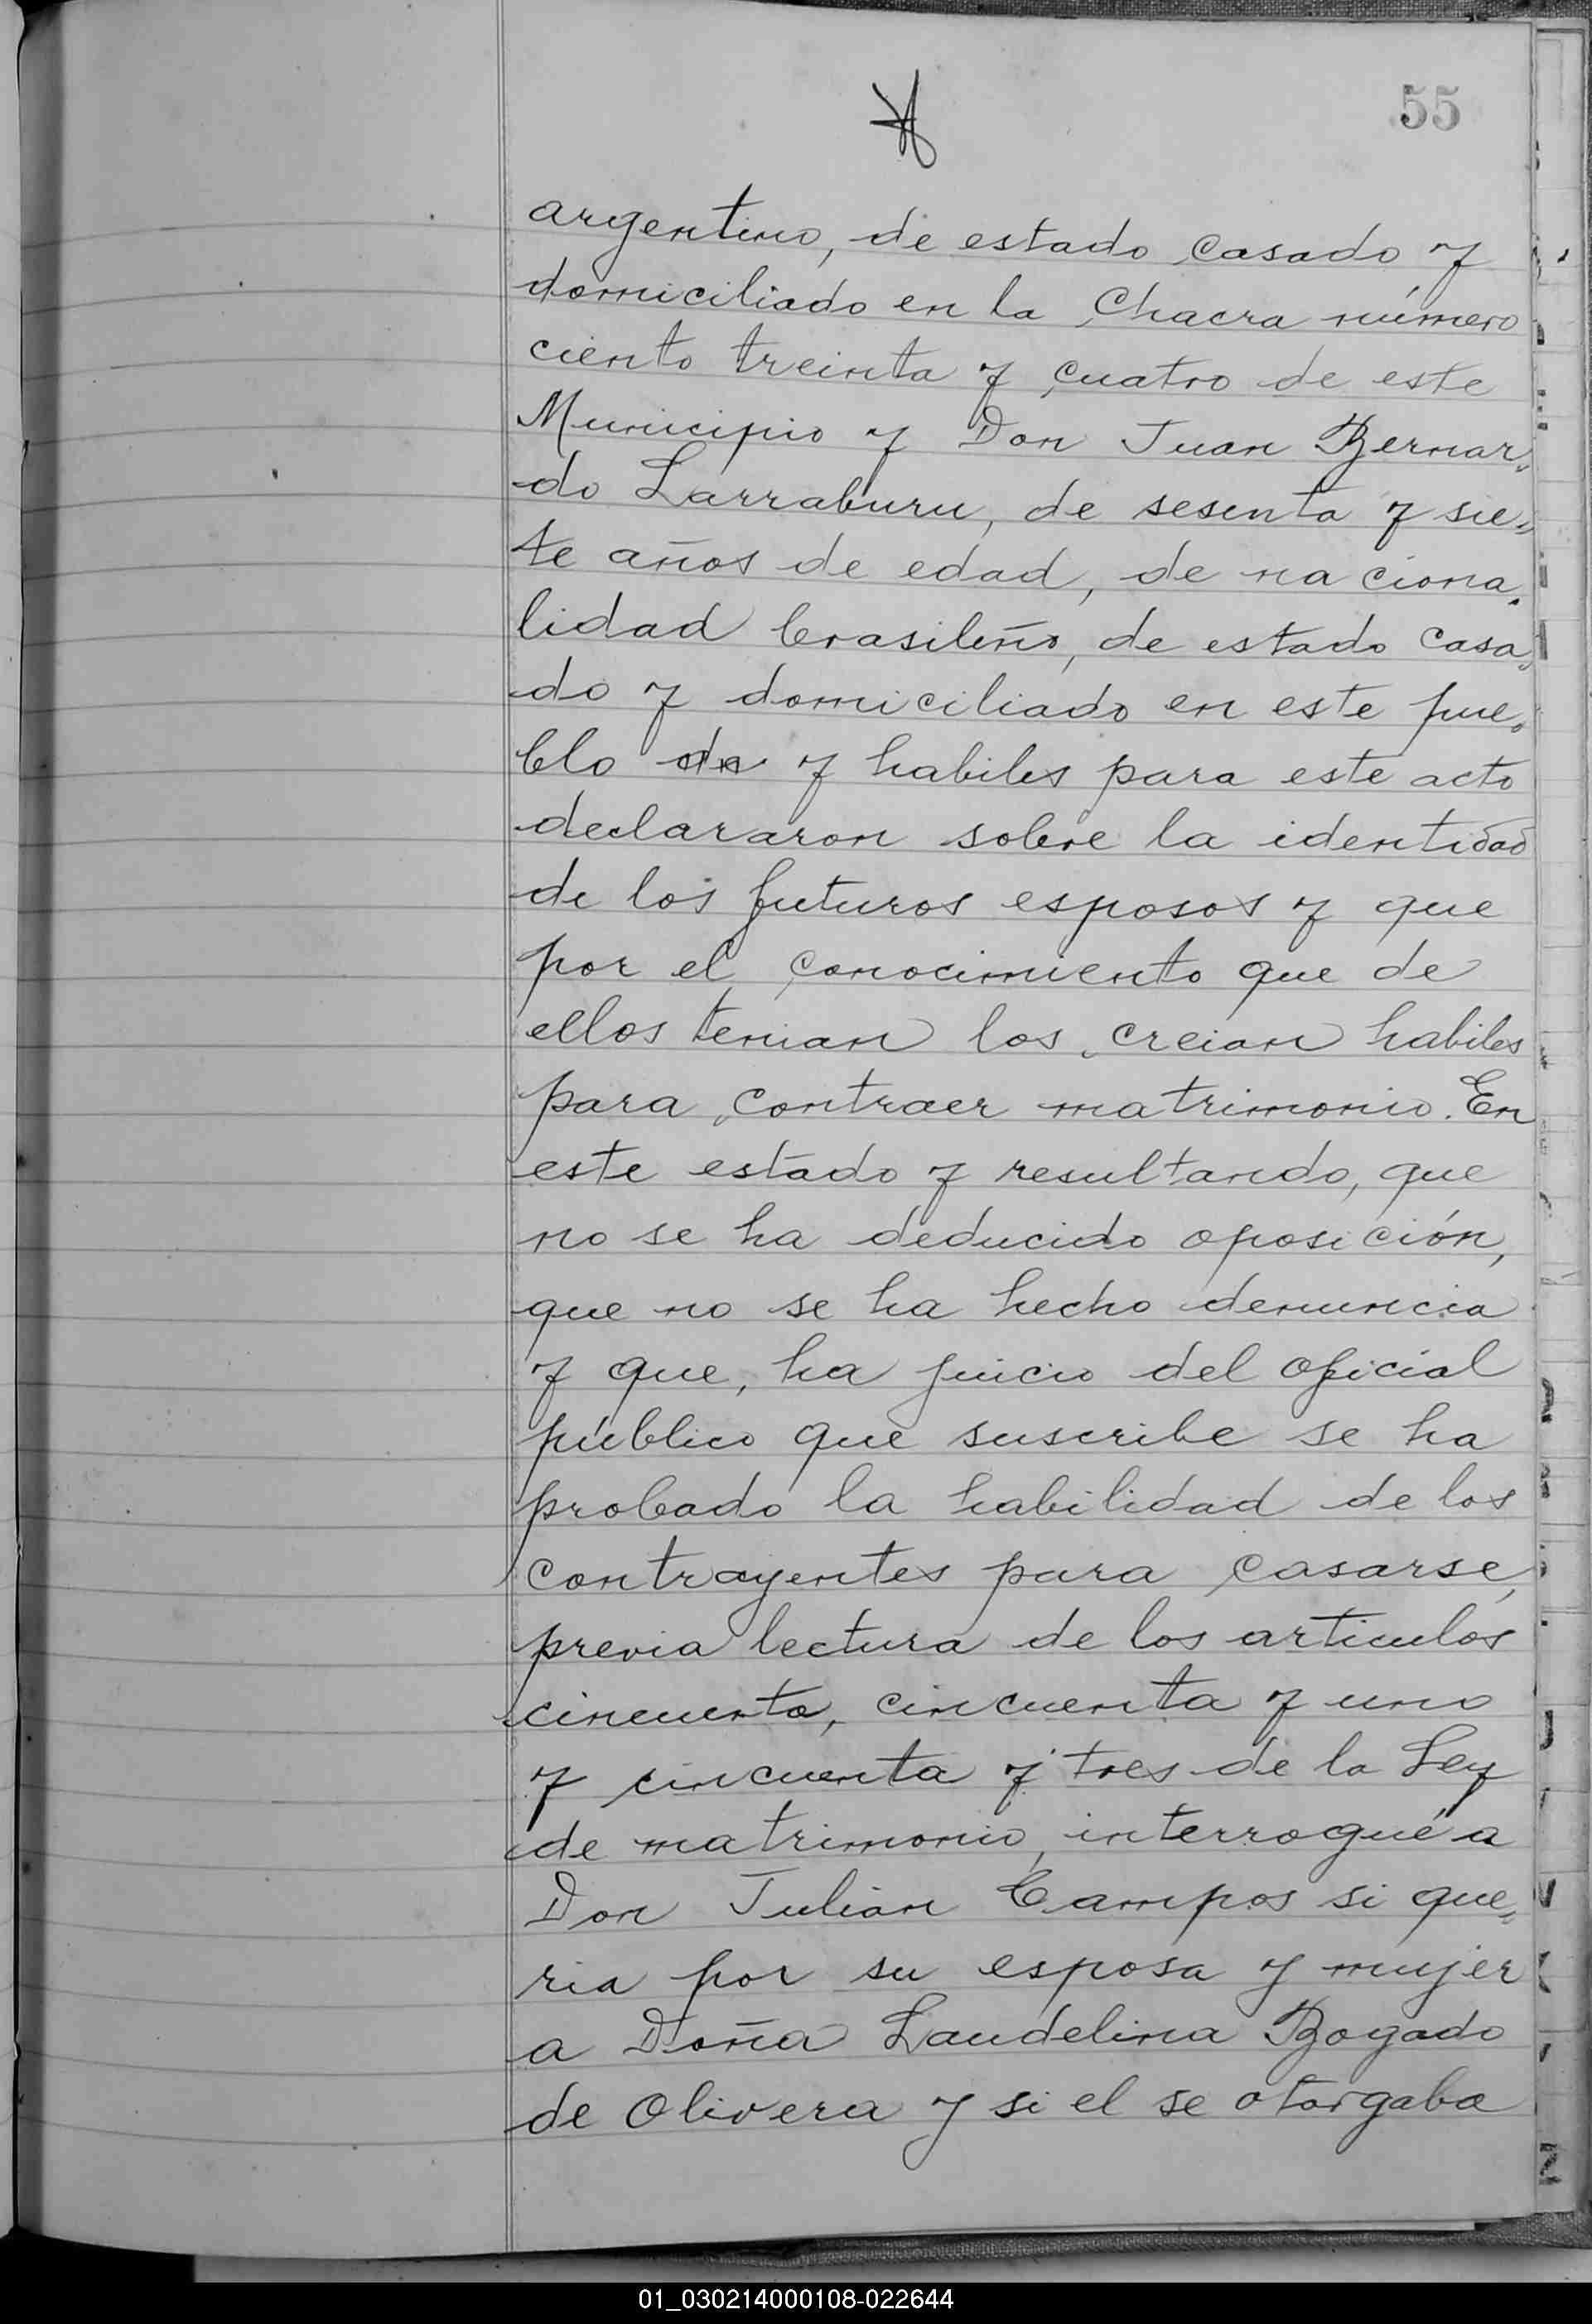 55
argentino, de estado casado y
domiciliado en la Chacra número
ciento treinta y cuatro de este
Municipio y Don Juan Bernar„
do Larraburu, de sesenta y sie„
te años de edad, de naciona„
lidad brasileño, de estado casa„
do y domiciliado en este pue„
blo de y habiles para este acto
declararon sobre la identidad
de los futuros esposos y que
por el conocimiento que de
ellos tenian los creian habiles
para contraer matrimonio. En
este estado y resultando, que
no se ha deducido oposición,
que no se ha hecho denuncia
y que, ha juicio del oficial
público que suscribe se ha
probado la habilidad de los
contrayentes para casarse,
previa lectura de los articulos
cincuenta, cincuenta y uno
y cincuenta y tres de la Ley
de matrimonio, interrogué a
Don Julian Campos si que„
ria por su esposa y mujer
a Doña Laudelina Bogado
de Olivera y si el se otorgaba
01_030214000108-022644